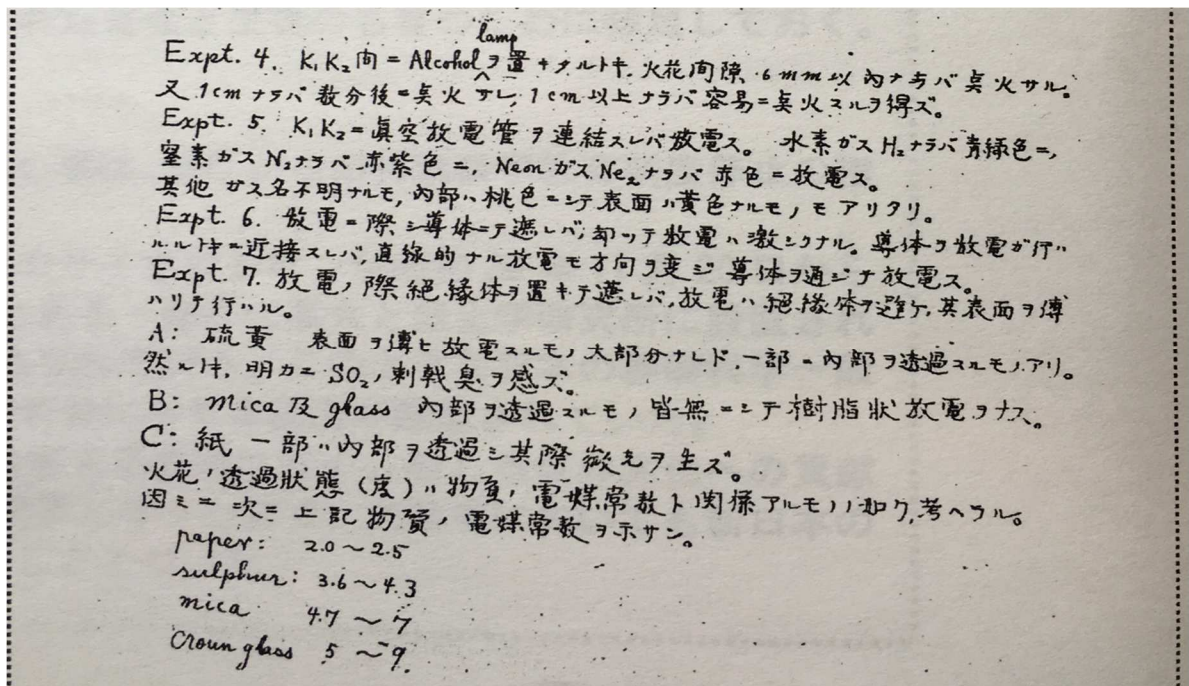 Expt. 4. K₁K₂間ニAlcohol lampヲ置キタルトキ.火花間隙.6mm以內ナラバ奌火サル。
又1cmナラバ数分後ニ奌火サレ,1cm以上ナラバ容易ニ奌火スルヲ得ズ。
Expt. 5. K₁K₂ニ眞空放電管ヲ連結スレバ放電ス。 水素ガスH₂ナラバ青緑色ニ,
窒素ガスN₂ナラバ赤紫色ニ, NeonガスNe₂ナラバ赤色ニ放電ス。
其他ガス名不明ナルモ,內部ハ桃色ニシテ表面ハ黄色ナルモノモアリタリ。
Expt. 6. 放電ニ際シ導体ニテ遮レバ,却ッテ放電ハ激シクナル。導体ヲ放電ガ行ハ
ルルトキニ近接スレバ,直線的ナル放電モ方向ヲ変ジ導体ヲ通ジテ放電ス。
Expt. 7. 放電ノ際絕縁体ヲ置キテ遮レバ,放電ハ絕縁体ヲ避ケ,其表面ヲ傳
ハリテ行ハル。
A: 硫黄 表面ヲ傳ヒ放電スルモノ大部分ナレド,一部ハ內部ヲ透過スルモノアリ。
然ルトキ,明カニSO₂ノ刺戟臭ヲ感ズ。
B: mica及glass 內部ヲ透過スルモノ皆無ニシテ樹脂狀放電ヲナス。
C: 紙 一部ハ內部ヲ透過シ其際微光ヲ生ズ。
火花ノ透過狀態(度)ハ物質ノ電媒常数ト関係アルモノノ如ク,考ヘラル。
因ミニ次ニ上記物質ノ電媒常数ヲ示サン。
paper: 2.0～2.5
sulphur: 3.6～4.3
mica 4.7～7
Crown glass 5～9.